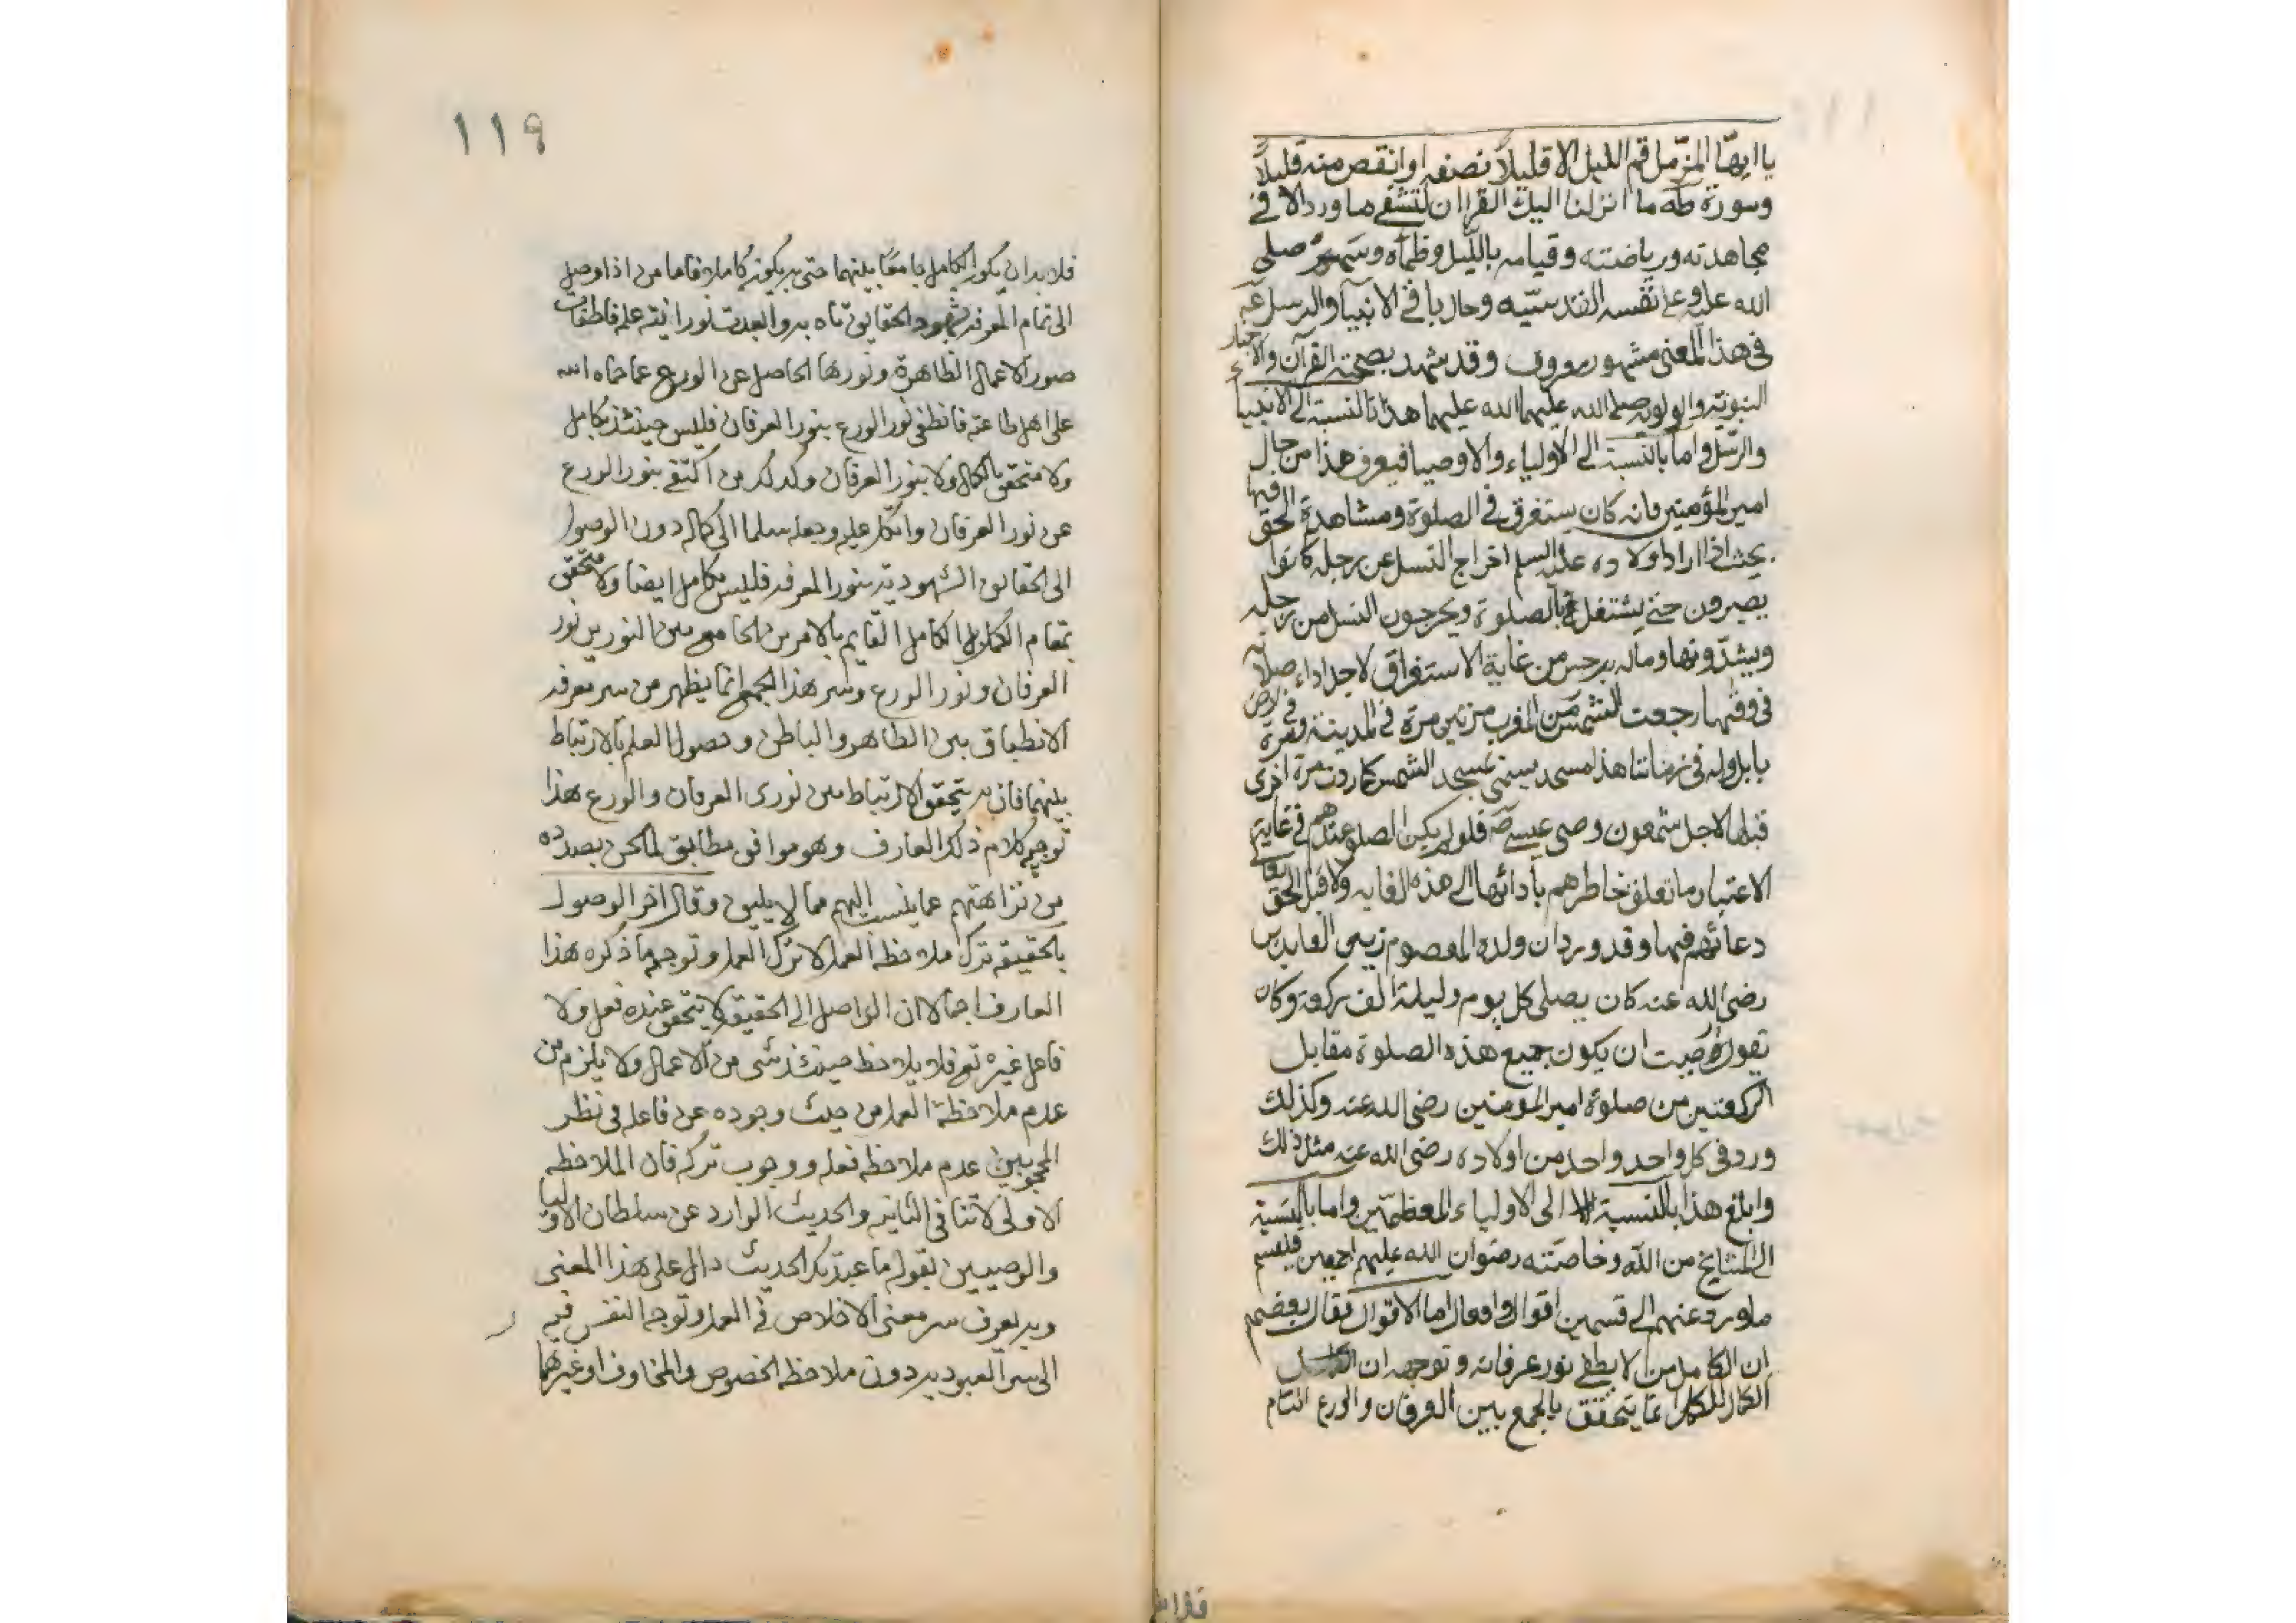 يا ايها المزمل قم الليل الا قليلاً نصفه او انقص منه قليلاً
وسورة طه ما انزلنا اليك القران لتشقى ما ورد الا في
مجاهدته ورياضته وقيامه بالليل وظمأه وسهره صلى
الله عليه وعلى نفسه القدسيّه وحال باقي الانبيآ والرسل
في هذا المعنى مشهور معروف وقد شهد بصحته القرآن والاخبار
النبوية والولوية صلى الله عليهما هذا بالنسبة الى الانبيا
والرسل واما بالنسبة الى الاولياء والاوصيا فيعرف هذا من حال
امير المؤمنين فانه كان يستغرق في الصلوة ومشاهدة الحق فيها
بحيث اذا اراد اولاده عليه السلم اخراج النسل عن رجله كانوا
يصبرون حتى يشتغل بالصلوة ويخرجون النسل من رجله
ويشدونها وماله به حس من غاية الاستغراق لاجل اداء صلاته
في وقتها رجعت الشمس من المغرب مرتين مرة في المدينة ومرة في ارض
بابل وله في زماننا هذا مسجد يسمى بمسجد الشمس كما ردت مرة اخرى
قبلها لاجل شمعون وصى عيسى فلو لم يكن الصلوة عندهم في غاية
الاعتبار ما تعلق خاطرهم بأدائها الى هذه الغايه ولا قبل الحق تعالى
دعائهم فيها وقد ورد ان ولده المعصوم زين العابدين
رضى الله عنه كان يصلى كل يوم وليلة الف ركعة وكان
يقول وددت ان يكون جميع هذه الصلوة مقابل
الركعتين من صلوة امير المؤمنين رضى الله عنه وكذلك
ورد في كل واحد واحد من اولاده رضى الله عنه مثل ذلك
وابلغ هذا بالنسبة الى الاولياء المعظمين واما بالنسبة
الى المشايخ من الله وخاصته رضوان الله عليهم اجمعين فينقسم
ما ورد عنهم الى قسمين اقوال وافعال اما الاقوال فقال بعضهم
ان الكامل من لا يطفى نور عرفانه وتوجهه ان
الكمال للكامل انما يتحقق بالجمع بين العرفان والورع التام
١١٩
فلا بد ان يكون الكامل جامعًا بينهما حتى به يكون كاملا فاما من اذا وصل
الى تمام المعرفه وشهود الحقايق تاه به وانعدمت نورانيته علم فانطفأت
صور الاعمال الظاهرة ونورها الحاصل عن الورع عما حماه الله
على اهل طاعته فانطفى نور الورع بنور العرفان فليس حينئذ بكامل
ولا متحقق بالكمال ولا بنور العرفان وكذلك من اكتفى بنور الورع
عن نور العرفان واتكل عليه وجعله سلما الى كماله دون الوصول
الى الحقايق الشهوديه بنور المعرفه فليس بكامل ايضا ولا متحقق
بمقام الكمال بل الكامل القايم بالامرين الجامع بين النورين نور
العرفان ونور الورع وسر هذا الجمع انما يظهر من سر معرفه
الانطباق بين الظاهر والباطن وحصول العلم بالارتباط
بينهما فان به يتحقق الارتباط بين نورى العرفان والورع هذا
توجيه كلام ذلك العارف وهو موافق مطابق لما نحن بصدده
من نزاهتهم عما ينسب اليهم مما لا يليق وقال اخر الوصول
بالحقيقه ترك ملاحظة العمل لا ترك العمل وتوجيه ما ذكره هذا
العارف اجمالا ان الواصل الى الحقيقة لا يتحقق عنده فعل ولا
فاعل غيره تع فلا يلاحظ حينئذ شى من الاعمال ولا يلزم من
عدم ملاحظة العمل من حيث وجوده عن فاعله في نظر
المحجوبين عدم ملاحظه فعله ووجوب تركه فان الملاحظه
الاولى لا تنافى الثانيه والحديث الوارد عن سلطان الاوليا
والوصيين بقوله ما عبدتك الحديث دال على هذا المعنى
وبه يعرف سر معنى الاخلاص في العمل وتوجه النفس فيه
الى سر العبوديه دون ملاحظه الخصوص والمخاوف او غيرهما